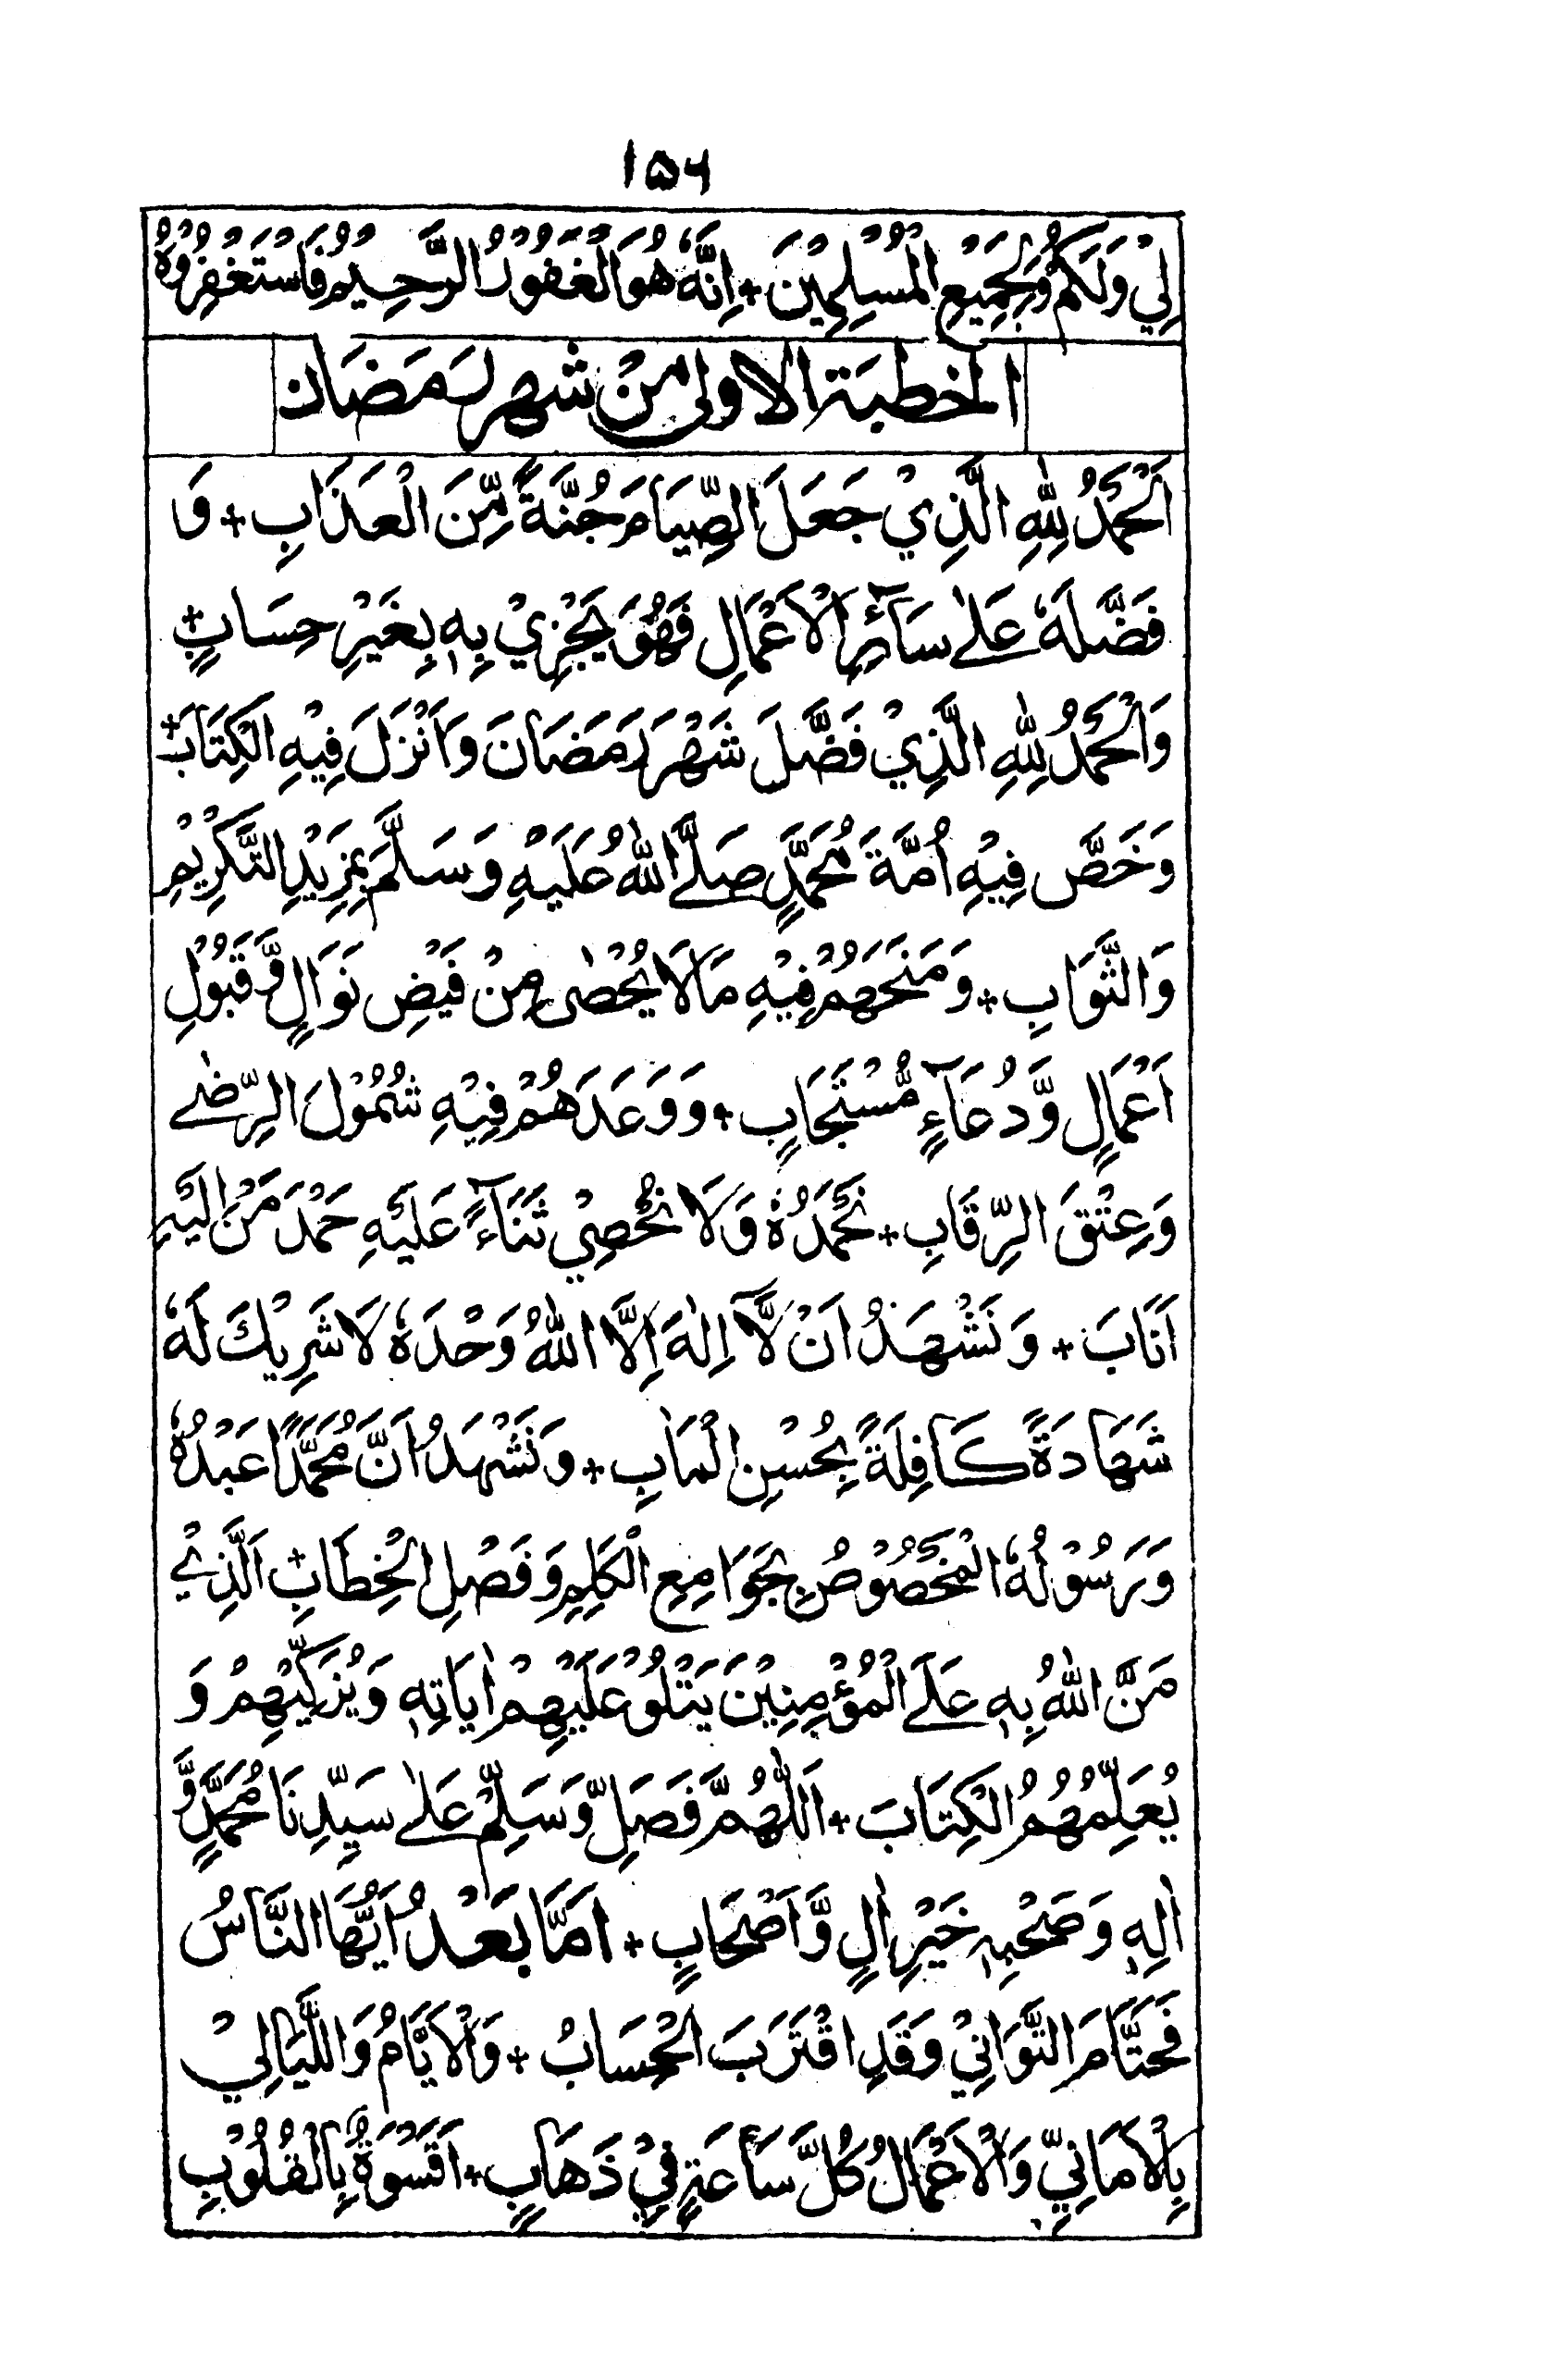 ۱۵۶
لِيْ وَلَكُمْ وَلِجَمِيْعِ الْمُسْلِمِيْنَ + اِنَّهٗ هُوَ الْغَفُوْرُ الرَّحِيْمُ فَاسْتَغْفِرُوْهُ
الخطبة الاولى من شهر رمضان
اَلْحَمْدُ لِلّٰهِ الَّذِيْ جَعَلَ الصِّيَامَ جُنَّةً مِّنَ الْعَذَابِ + وَ
فَضَّلَهٗ عَلٰى سَآئِرِ الْاَعْمَالِ فَهُوَ يَجْزِيْ بِهٖ بِغَيْرِ حِسَابٍ +
وَالْحَمْدُ لِلّٰهِ الَّذِيْ فَضَّلَ شَهْرَ رَمَضَانَ وَاَنْزَلَ فِيْهِ الْكِتَابَ +
وَخَصَّ فِيْهِ اُمَّةَ مُحَمَّدٍ صَلَّى اللّٰهُ عَلَيْهِ وَسَلَّمَ بِمَزِيْدِ التَّكْرِيْمِ
وَالثَّوَابِ + وَمَنَحَهُمْ فِيْهِ مَا لَا يُحْصٰى مِنْ فَيْضِ نَوَالٍ وَّقَبُوْلِ
اَعْمَالٍ وَّدُعَآءٍ مُّسْتَجَابٍ + وَوَعَدَهُمْ فِيْهِ شُمُوْلَ الرِّضٰى
وَعِتْقَ الرِّقَابِ + نَحْمَدُهٗ وَلَا نُحْصِيْ ثَنَآءً عَلَيْهِ حَمْدَ مَنْ اِلَيْهِ
اَنَابَ + وَنَشْهَدُ اَنْ لَّآ اِلٰهَ اِلَّا اللّٰهُ وَحْدَهٗ لَا شَرِيْكَ لَهٗ
شَهَادَةً كَافِلَةً بِحُسْنِ الْمَاٰبِ + وَنَشْهَدُ اَنَّ مُحَمَّدًا عَبْدُهٗ
وَرَسُوْلُهُ الْمَخْصُوْصُ بِجَوَامِعِ الْكَلِمِ وَفَصْلِ الْخِطَابِ + اَلَّذِيْ
مَنَّ اللّٰهُ بِهٖ عَلَى الْمُؤْمِنِيْنَ يَتْلُوْ عَلَيْهِمْ اٰيَاتِهٖ وَيُزَكِّيْهِمْ وَ
يُعَلِّمُهُمُ الْكِتَابَ + اَللّٰهُمَّ فَصَلِّ وَسَلِّمْ عَلٰى سَيِّدِنَا مُحَمَّدٍ وَّ
اٰلِهٖ وَصَحْبِهٖ خَيْرِ اٰلٍ وَّاَصْحَابٍ + اَمَّا بَعْدُ اَيُّهَا النَّاسُ
فَحَتَّامَ التَّوَانِيْ وَقَدِ اقْتَرَبَ الْحِسَابُ + وَالْاَيَّامُ وَاللَّيَالِيْ
بِالْاَمَانِيِّ وَالْاَعْمَالُ كُلَّ سَاعَةٍ فِيْ ذَهَابٍ + اَقَسْوَةٌ بِالْقُلُوْبِ